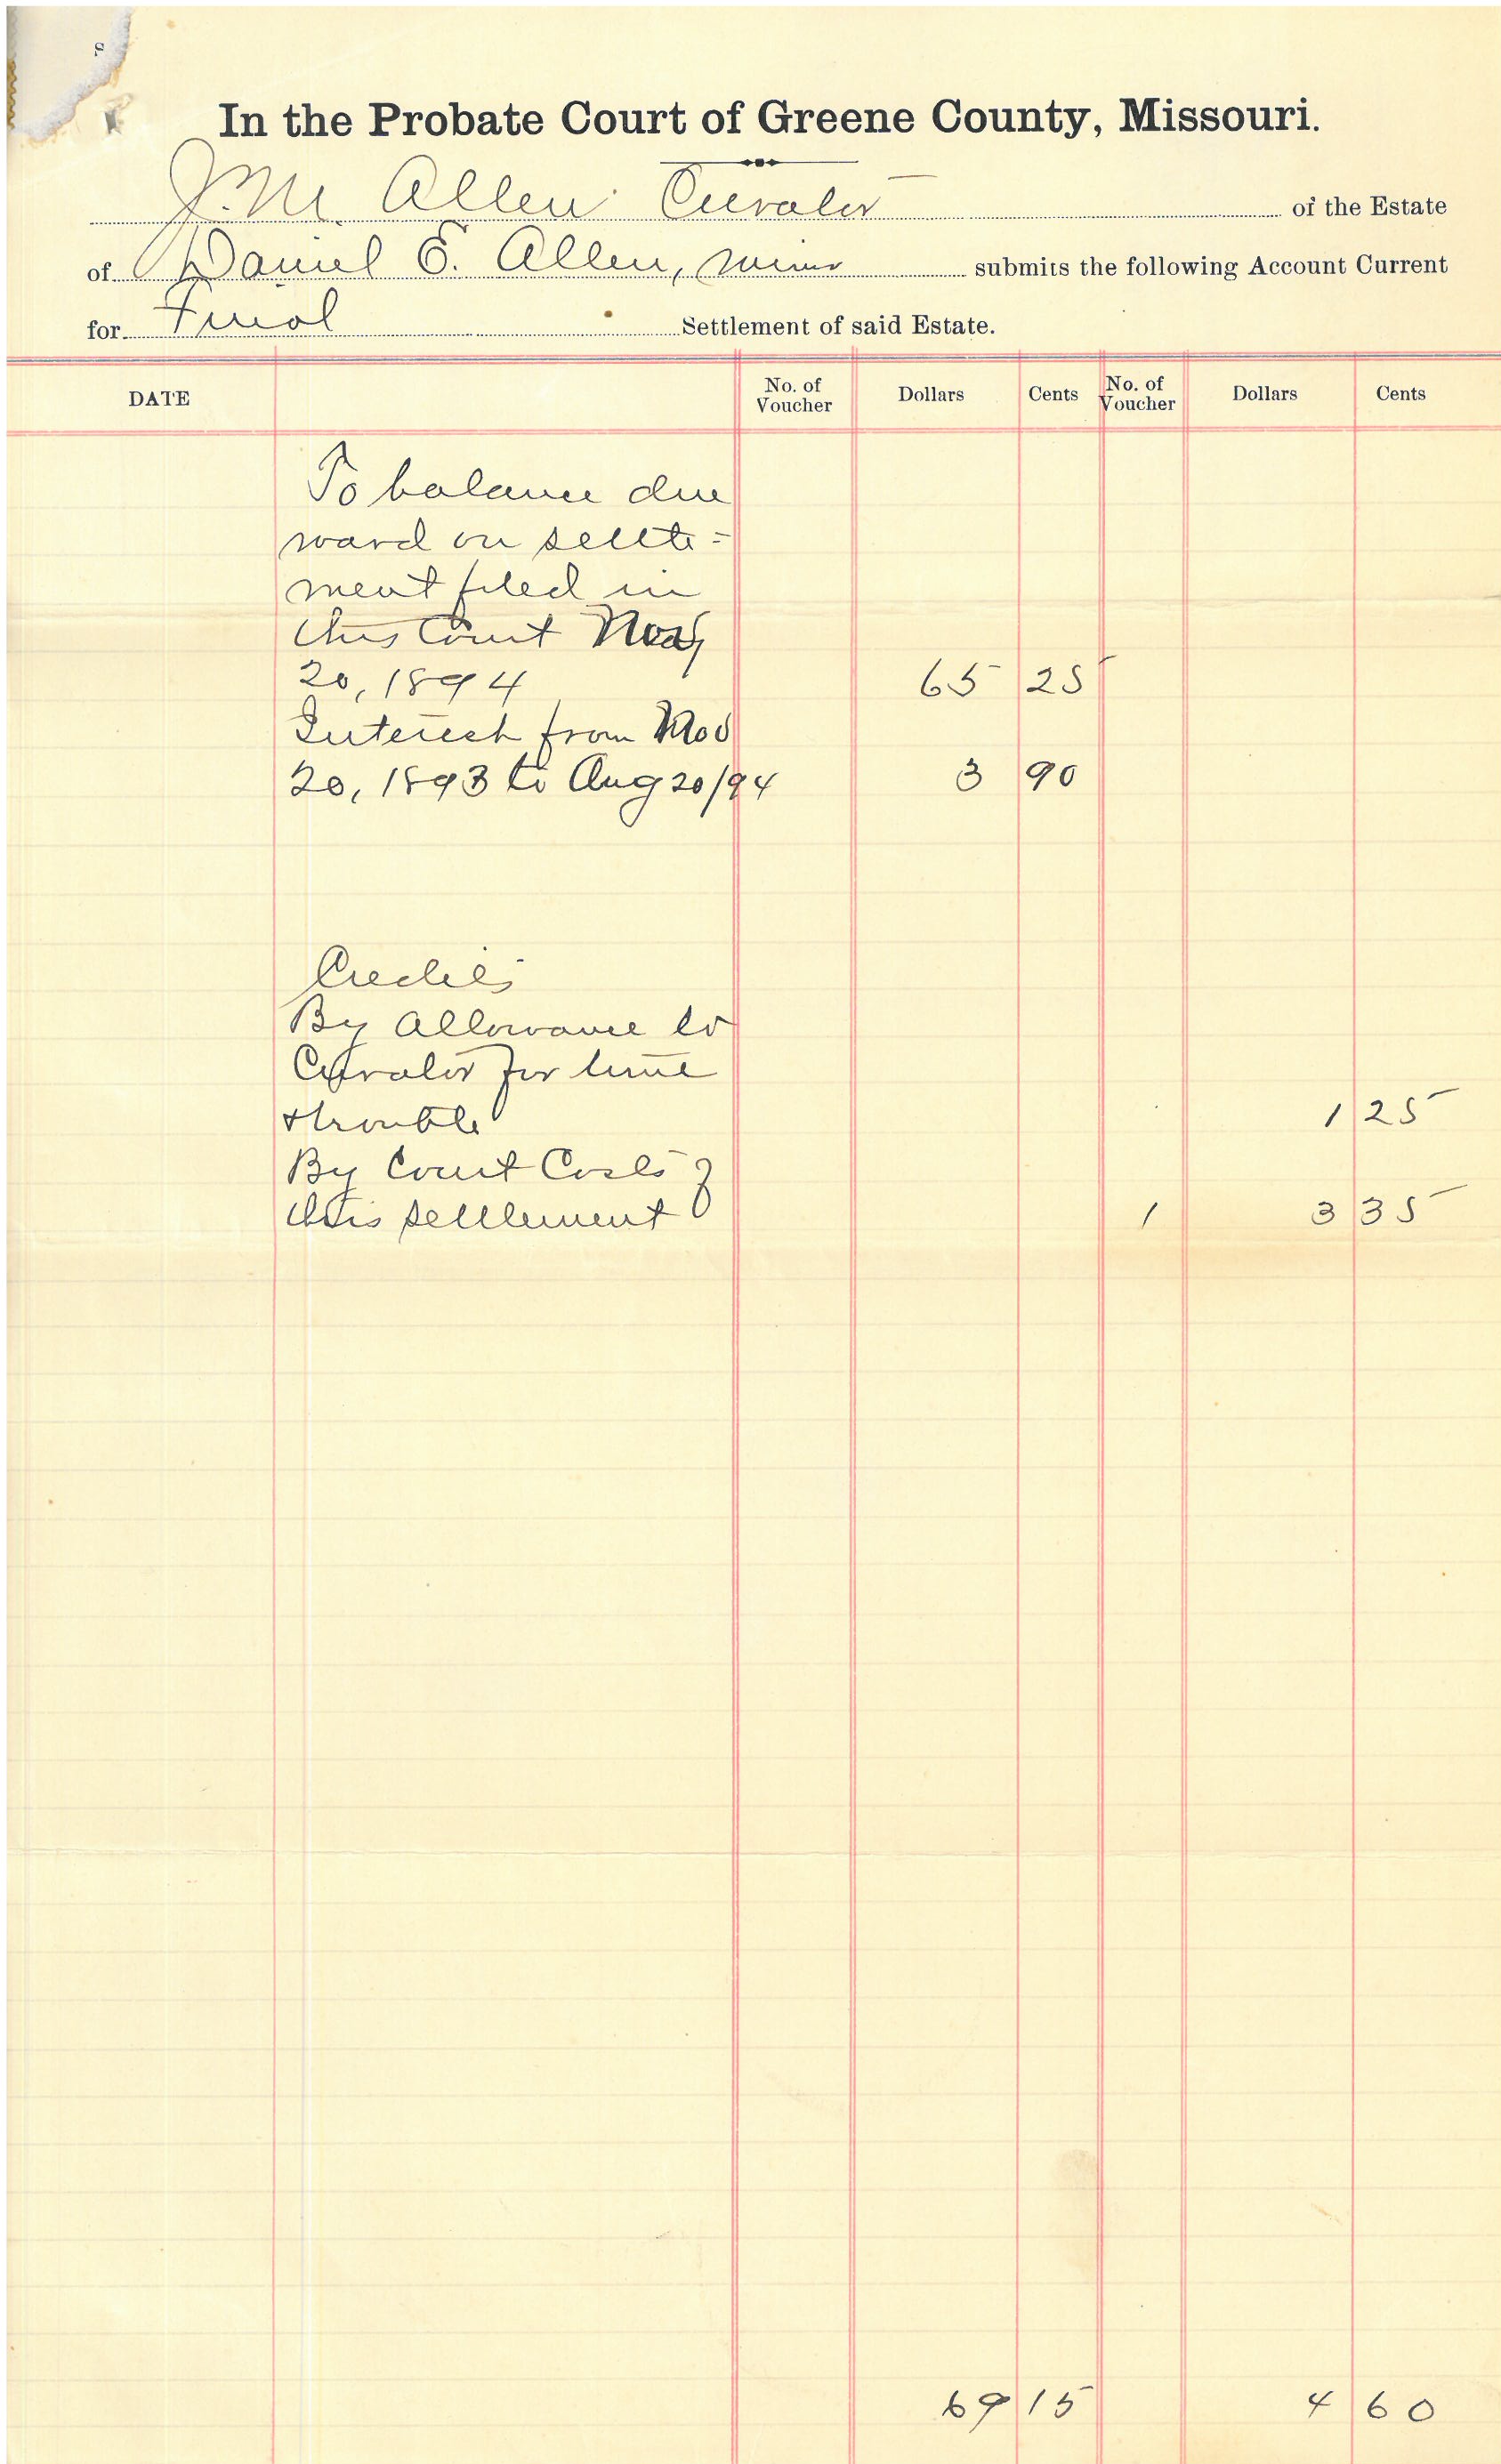 In the Probate Court of Greene County, Missouri.
J. M. Allen Curator of the Estate
of Daniel E. Allen, minor submits the following Account Current
for Final Settlement of said Estate.
DATE No. of Voucher Dollars Cents No. of Voucher Dollars Cents
To balance due
ward on settle-
ment filed in
this Court
20, 1894 65 25
Interest from Nov
20, 1893 to Aug 20/94 3 90
Credits
By Allowance to
Curator for time
& trouble 1 25
By Court Costs of
this settlement 1 3 35
69 15 4 60